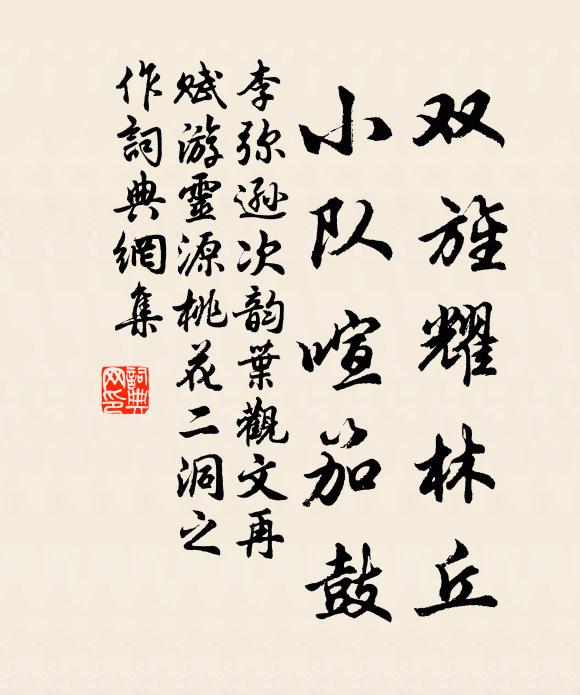 双旌耀林丘
小队喧笳鼓
李弥逊次韵葉觀文再
赋游靈源桃花二洞之
作詞典網集
詞典
网印